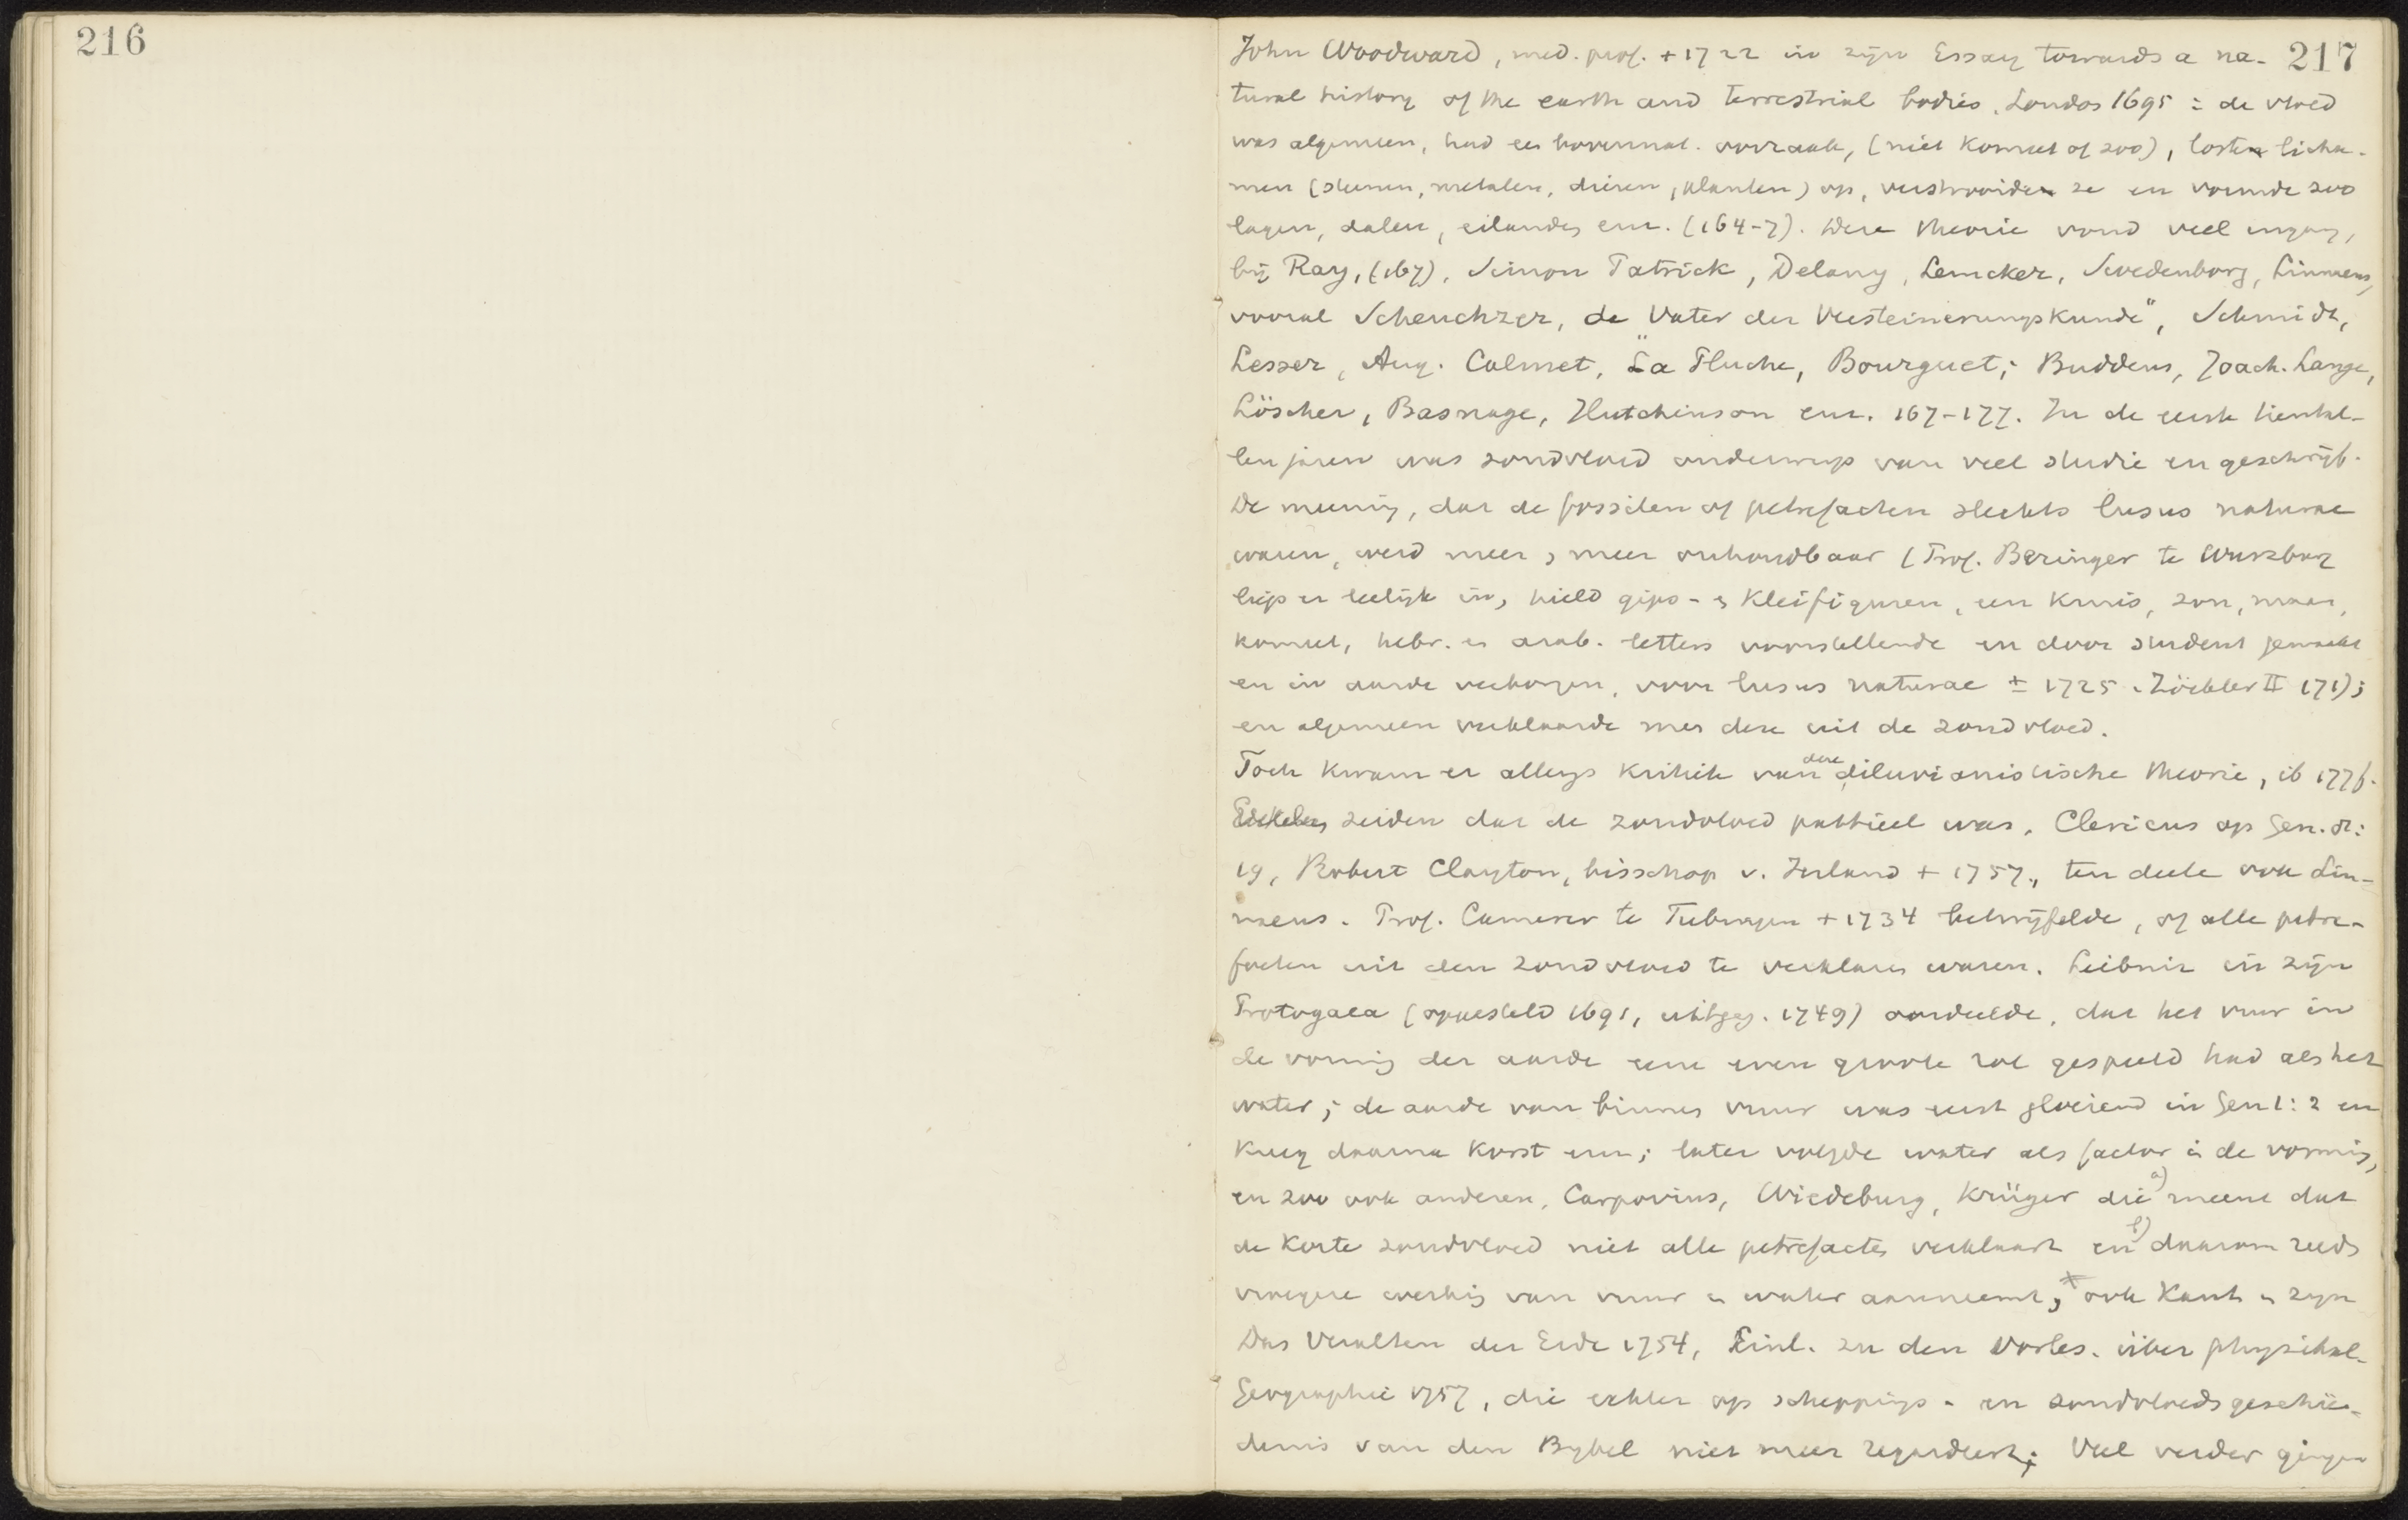 216
217
John Woodward, med. prof. + 1722 in zijn Essay towards a na-
tural history of the earth and terrestrial bodies, London 1695 : de vloed
was algemeen, had een bovennat. oorzaak, (niet komeet of zoo), loste licha-
men (steenen, metalen, dieren, planten) op, verstrooide ze en vormde zoo
lagen, dalen, eilanden enz. (164-7). Deze theorie vond veel ingang,
bij Ray, (167), Simon Patrick, Delany, Lemcker, Swedenborg, Linnaeus,
vooral Scheuchzer, de „Vater der Versteinerungskunde", Schmidt,
Lesser, Aug. Calmet, La Pluche, Bourguet; Buddeus, Joach. Lange,
Löscher, Basnage, Hutchinson enz. 167-177. In de eerste tiental-
len jaren was zondvloed onderwerp van veel studie en geschrijf.
De meening, dat de fossilen of petrefacten slechts lusus naturae
waren, werd meer en meer onhoudbaar (Prof. Beringer te Wurzburg
liep er leelijk in, hield gips- en kleifiguren, een kruis, zon, maan,
komeet, hebr. en arab. letters voorstellende en door student gemaakt
en in aarde verborgen, voor lusus naturae ± 1725. Zöckler II 171);
en algemeen verklaarde men deze uit de zondvloed.
Toch kwam er allengs kritiek van deze diluvianistische theorie, ib 177f.
zeiden dat de zondvloed partieel was, Clericus op Gen. 7:
19, Robert Clayton, bisschop v. Ierland + 1757, ten deele ook Lin-
naeus. Prof. Camerer te Tubingen + 1734 betwijfelde, of alle petre-
facten uit den zondvloed te verklaren waren. Leibniz in zijn
Protogaea (opgesteld 1691, uitgeg. 1749) oordeelde, dat het vuur in
de vorming der aarde eene even groote rol gespeeld had als het
water; de aarde van binnen vuur was eerst gloeiend in Gen 1:2 en
kreeg daarna korst enz; later volgde water als factor in de vorming,
en zoo ook anderen, Carpovius, Wiedeburg, Krüger die a) meent dat
de korte zondvloed niet alle petrefacten verklaart en b) daarom reeds
vroegere werking van vuur en water aanneemt, ook Kant in zijn
Das Veralten der Erde 1754, Einl. zu den Vorles. über physikal.
Geographie 1757, die echter op scheppings- en zondvloedsgeschie-
denis van den Bijbel niet meer regardeert; Veel verder gingen